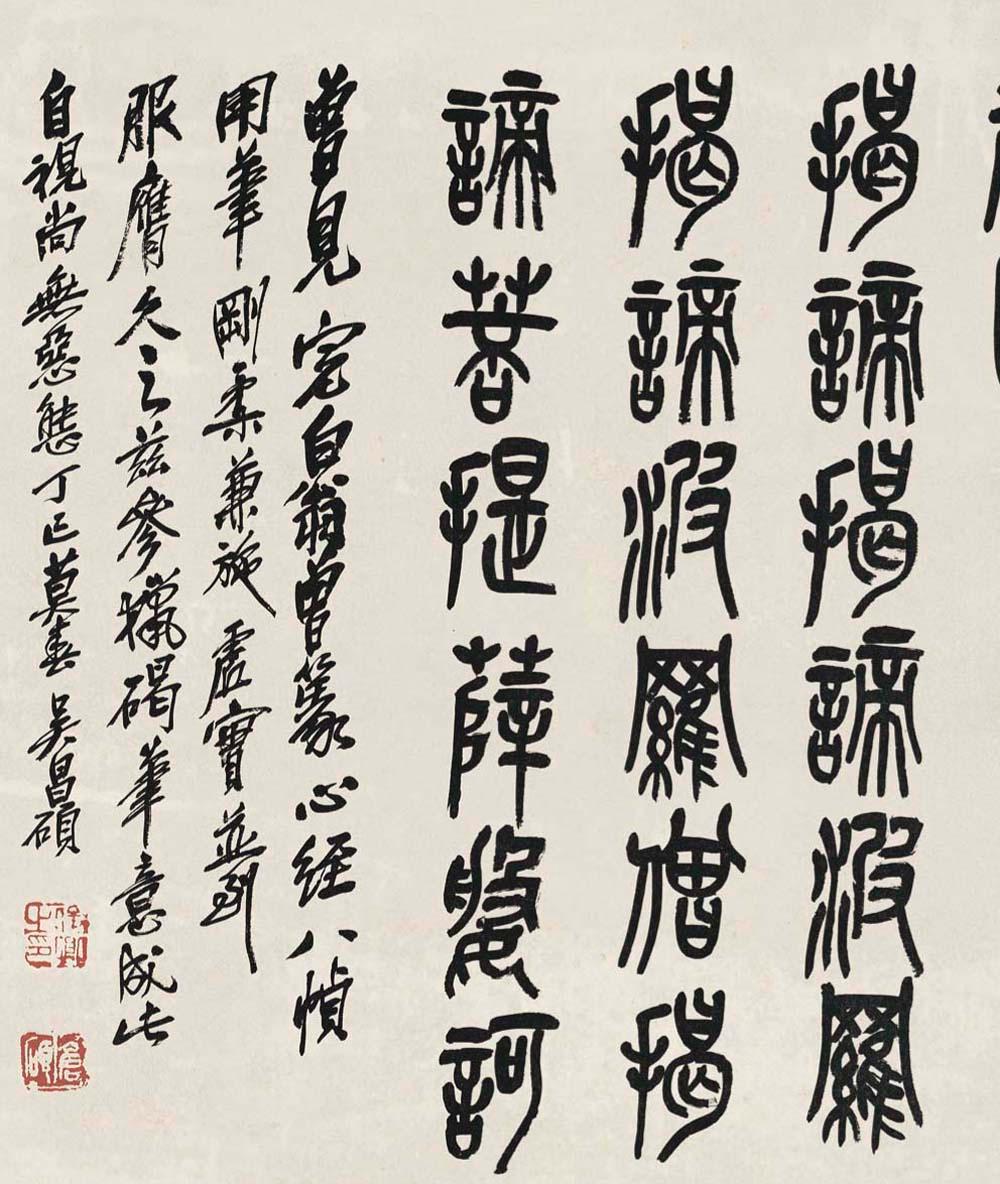 揭諦揭諦波羅
揭諦波羅僧揭
諦菩提薩媻訶
曾見完白翁曾篆心經八幀
用筆剛柔兼施虛實並到
服膺久之茲參獵碣筆意成此
自視尚無惡態丁巳莫春吳昌碩
俊卿之印
倉碩